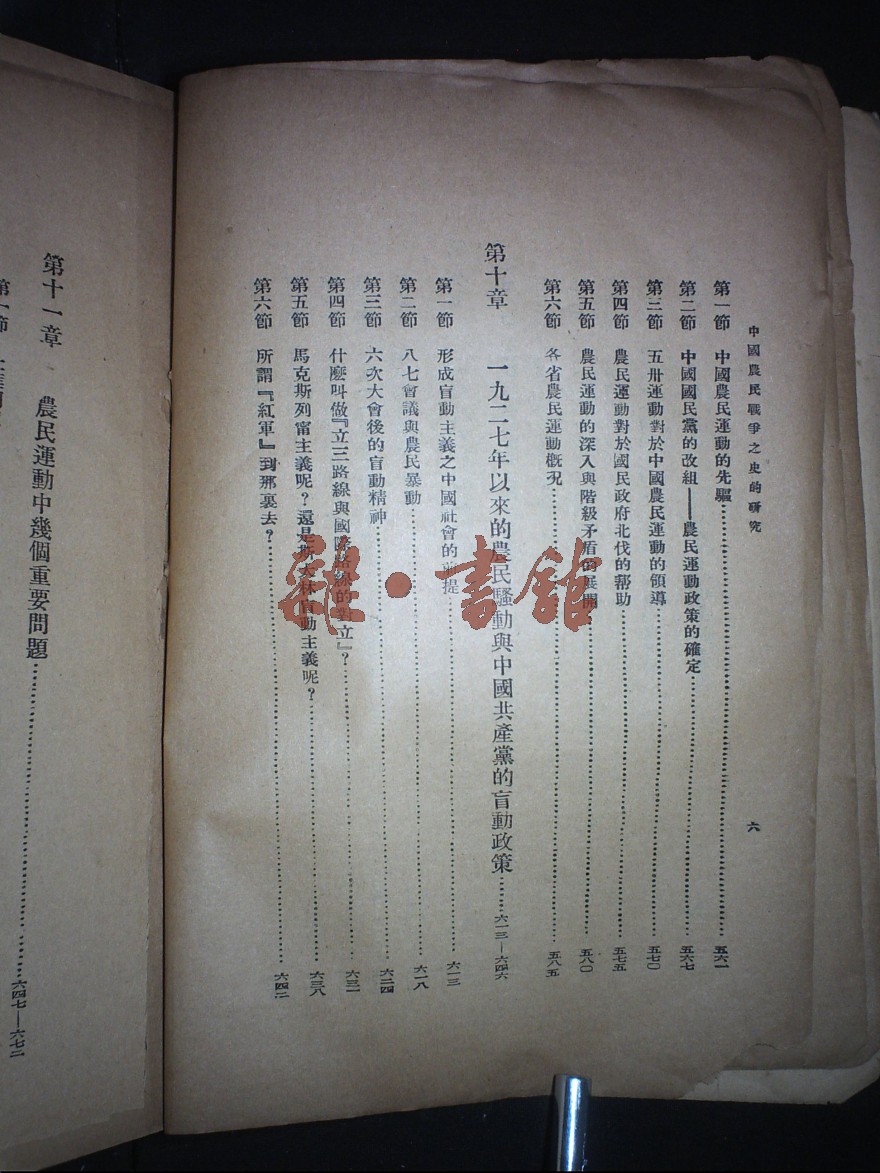 中國農民戰爭之史的研究
六
第一節 中國農民運動的先驅……五六一
第二節 中國國民黨的改組——農民運動政策的確定……五六七
第三節 五卅運動對於中國農民運動的領導……五七〇
第四節 農民運動對於國民政府北伐的幫助……五七五
第五節 農民運動的深入與階級矛盾的展開……五八〇
第六節 各省農民運動概況……五八五
第十章 一九二七年以來的農民騷動與中國共產黨的盲動政策……六一三—六四六
第一節 形成盲動主義之中國社會的前提……六一三
第二節 八七會議與農民暴動……六一八
第三節 六次大會後的盲動精神……六二四
第四節 什麽叫做『立三路線與國際路線的對立』?……六三一
第五節 馬克斯列甯主義呢?還是斯大林盲動主義呢?……六三八
第六節 所謂『紅軍』到那裏去?……六四二
第十一章 農民運動中幾個重要問題……六四七—六七二
第一節
雜·書館